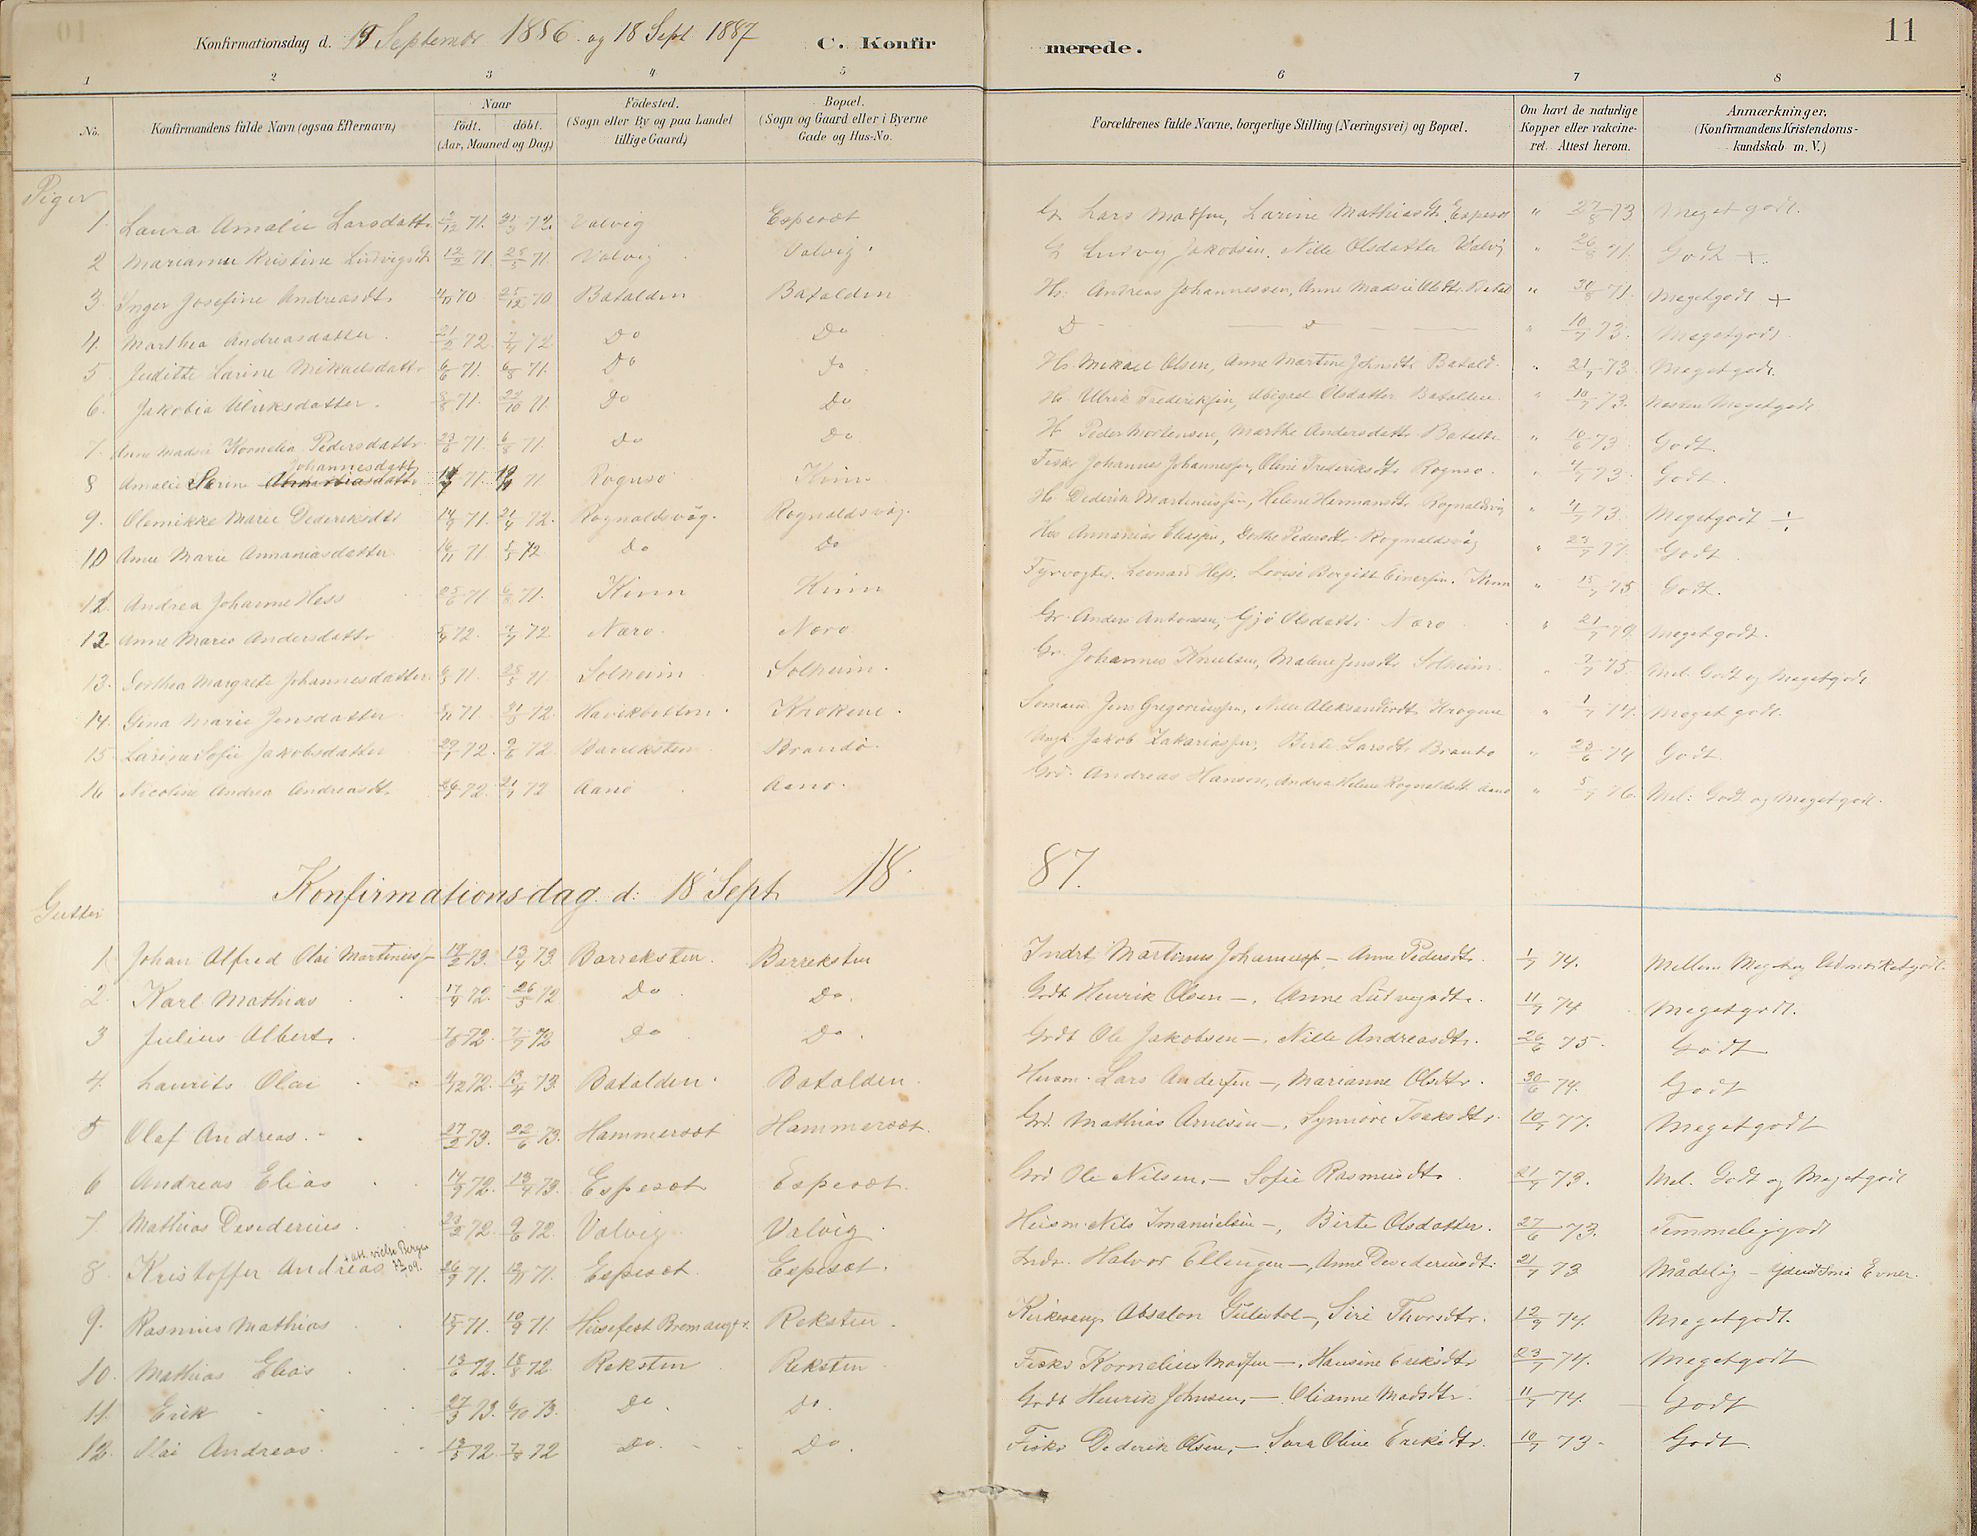 11
Konfirmationsdag d. 19 September 1886 og 18 Sept 1887 C. Konfirmerede.
1 2 3 4 5 6 7 8
No. Konfirmandens fulde Navn (ogsaa Efternavn) Naar født. døbt. (Aar, Maaned og Dag) Födested. (Sogn eller By og paa Landet tillige Gaard) Bopæl. (Sogn og Gaard eller i Byerne Gade og Hus-No. Forældrenes fulde Navne, borgerlige Stilling (Næringsvei) og Bopæl. Om havt de naturlige Kopper eller vakcineret. Attest herom. Anmærkninger. (Konfirmandens Kristendomskundskab m. V.)
Piger
1. Laura Amalie Larsdatt. 71. 72. Valvig Espesæt Lars Madsen, Larine Mathiasdt. Espesæt " 27/8 73 Meget godt.
2 Marianne Kristine Ludvigsdt. 12/2 71 25/5 71. Valvig Valvig. Ludvig Jakobsen, Nille Olsdatter Valvig " 26/8 71. Godt +.
3. Inger Josefine Andreasdt. 70 25/12 70 Batalden Batalden Andreas Johannessen, Anne Madsie Olsdt. Batal " 30/8 71. Megetgodt +
4. Marthea Andreasdatter. 21/2 72. 7/4 72 Do Do D - D - " 10/7 73. Megetgodt.
5. Juditte Larine Mikaelsdatt. 6/6 71. 6/8 71. Do Do Mikael Olsen, Anne Martine Johnsdt. Batald. " 21/7 73. Megetgodt.
6. Jakobia Ulriksdatter. 71. 71 Do Do Ulrik Frederiksen, Abigael Olsdatter Batalden. " 10/7 73. Næsten Megetgodt.
7. Anne Madsie Kornelia Pedersdattr. 71. 6/8 71. Do Do Peder Mortensen, Marthe Andersdattr. Batalde " 10/6 73 Godt.
8 Amalie Serine Johannesdatt 71. 71 Rognsø Kinn Fisks Johannes Johannesen, Oline Frederiksdt. Rognsø. " 4/7 73. Godt.
9. Olemikke Marie Dederiksdt. 14/9 71. 21/4 72. Rognaldsvåg. Rognaldsvåg. Dederik Martinussen, Helene Hermansdt. Rognaldsvig " 73. Megetgodt ÷
10 Anne Marie Annaniasdatter 16/11 71. 5/5 72 Do Do Annanias Eliassen, Dorthe Pedersdt. Rognaldsvåg " 23/7 77. Godt.
11. Andrea Johanne Hess 25/6 71 6/8 71. Kinn Kinn Fyrvogter. Leonard Hess, Lovise Borgitte Einersen. Kinn " 15/7 75 Godt.
12. Anne Marie Andersdattr. 72. 72 Nærø. Nærø Gr. Anders Antonsen, Gjø Olsdattr. Nærø " 21/7 79 Megetgodt.
13. Dorthea Margrete Johannesdatter. 71. 25/5 71 Solheim Solheim. Gr. Johannes Knutsen, Malene Jensdtr. Solheim. " 75. Mel. Godt og Megetgodt
14. Gina Marie Jensdatter 71. 72. Havikbotten. Krokene. Sømand Jens Gregoriussen, Nille Aleksandersdt. Krogene " 1/7 74. Meget godt.
15 Larine Sofie Jakobsdatter 72. 9/6 72. Barreksten Brandø. Jakob Zakariassen, Birte Larsdt. Brandø " 23/6 74 Godt.
16 Nicoline Andrea Andreasdt. 72. 21/7 72 Aanø Aanø. Grd. Andreas Hansen, Andrea Helene Rognaldsdt. Aanø " 5/7 76. Mel: Godt og Megetgodt.
Konfirmationsdag d: 18 Sept 1887.
Gutter
1. Johan Alfred Olai Martinuss- 19/2 73. 13/4 73. Barreksten. Barreksten Indrt Martinus Johannesen - Anne Pedersdt. 1/7 74. Mellem Meg. og Udmærketgodt.
2. Karl Mathias 17/9 72. 26/5 72 Do Do. Grdt Henrik Olsen -, Anne Ludvigsdt. 11/7 74 Megetgodt.
3 Julius Albert. 72. 72 Do Do. Grdt Ole Jakobsen -, Nille Andreasdt. 26/6 75. Godt
4. Laurits Olai 72. 13/4 73. Batalden. Batalden. Husm. Lars Andersen -, Marianne Olsdt. 30/6 74. Godt
5 Olaf Andreas. 27/2 73. 22/6 73. Hammersæt Hammersæt. Grd. Mathias Arnesen -, Synnøve Isaksdt. 10/7 77. Megetgodt
6 Andreas Elias 14/9 72. 13/4 73. Espesæt Espesæt. Grd Ole Nilsen, - Sofie Rasmusdt. 21/7 73. Mel. Godt og Megetgodt
7. Mathias Desederius. 23/2 72. 9/6 72. Valvig Valvig. Husm. Nils Imanuelsen -, Birte Olsdatter. 27/6 73. Temmeliggodt
8. Kristoffer Andreas att. vielse Bergen 09. 26/9 71. 71. Espesæt. Espesæt. Indr. Halvor Ellingsen -, Anne Desederiusdt. 21/7 73 Mådelig - Yderst små Evner.
9. Rasmus Mathias 15/7 71. 10/9 71. Husefest Bremanger. Reksten. Kirkesang. Absalon Gulestøl -, Siri Thorsdt. 12/9 74. Megetgodt.
10. Mathias Elias 13/6 72. 18/8 72. Reksten Reksten Fisks Kornelius Madsen -, Hansine Eriksdt. 23/7 74. Megetgodt
11. Erik 27/3 73. 6/10 73. Do. Do. Grdt Henrik Johnsen, - Olianne Madsdtr. 11/7 74. Godt
12. Olai Andreas. 72. 72 Do. Do. Fisks Dederik Olsen, - Sara Oline Eriksdt. 10/7 73. Godt